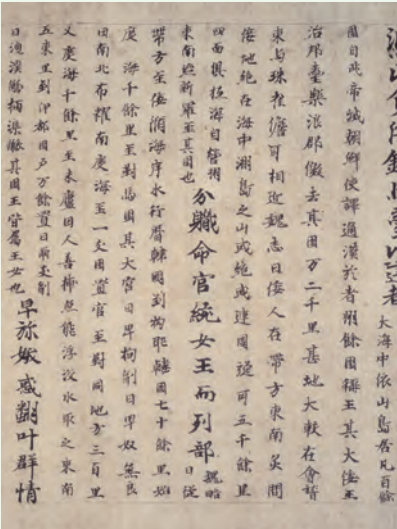 大海中依山島居凡百餘
國自武帝滅朝鮮使譯通漢於者卅餘國稱王其大倭王
治邦臺樂浪郡儌去其國万二千里甚地大較在會稽
東与珠崖儋耳相近魏志曰倭人在帶方東南炙問
倭地絶在海中洲島之山或絶或連周旋可五千餘里
四面俱抵海自營州
東南經新羅至其國也
分職命官統女王而列部
魏略
曰從
帶方至倭循海岸水行暦韓國到拘耶韓國七十餘里始
度一海千餘里至對馬國其大官曰卑狗副曰卑奴無良
田南北布糴南度海至一支國置官至對同地方三百里
又度海千餘里至末盧國人善捕魚能浮没水取之東南
五東里到伊都國戸万餘置曰爾支副
曰洩渓觚柄渠觚其國王皆属王女也
卑弥娥惑翻叶群情